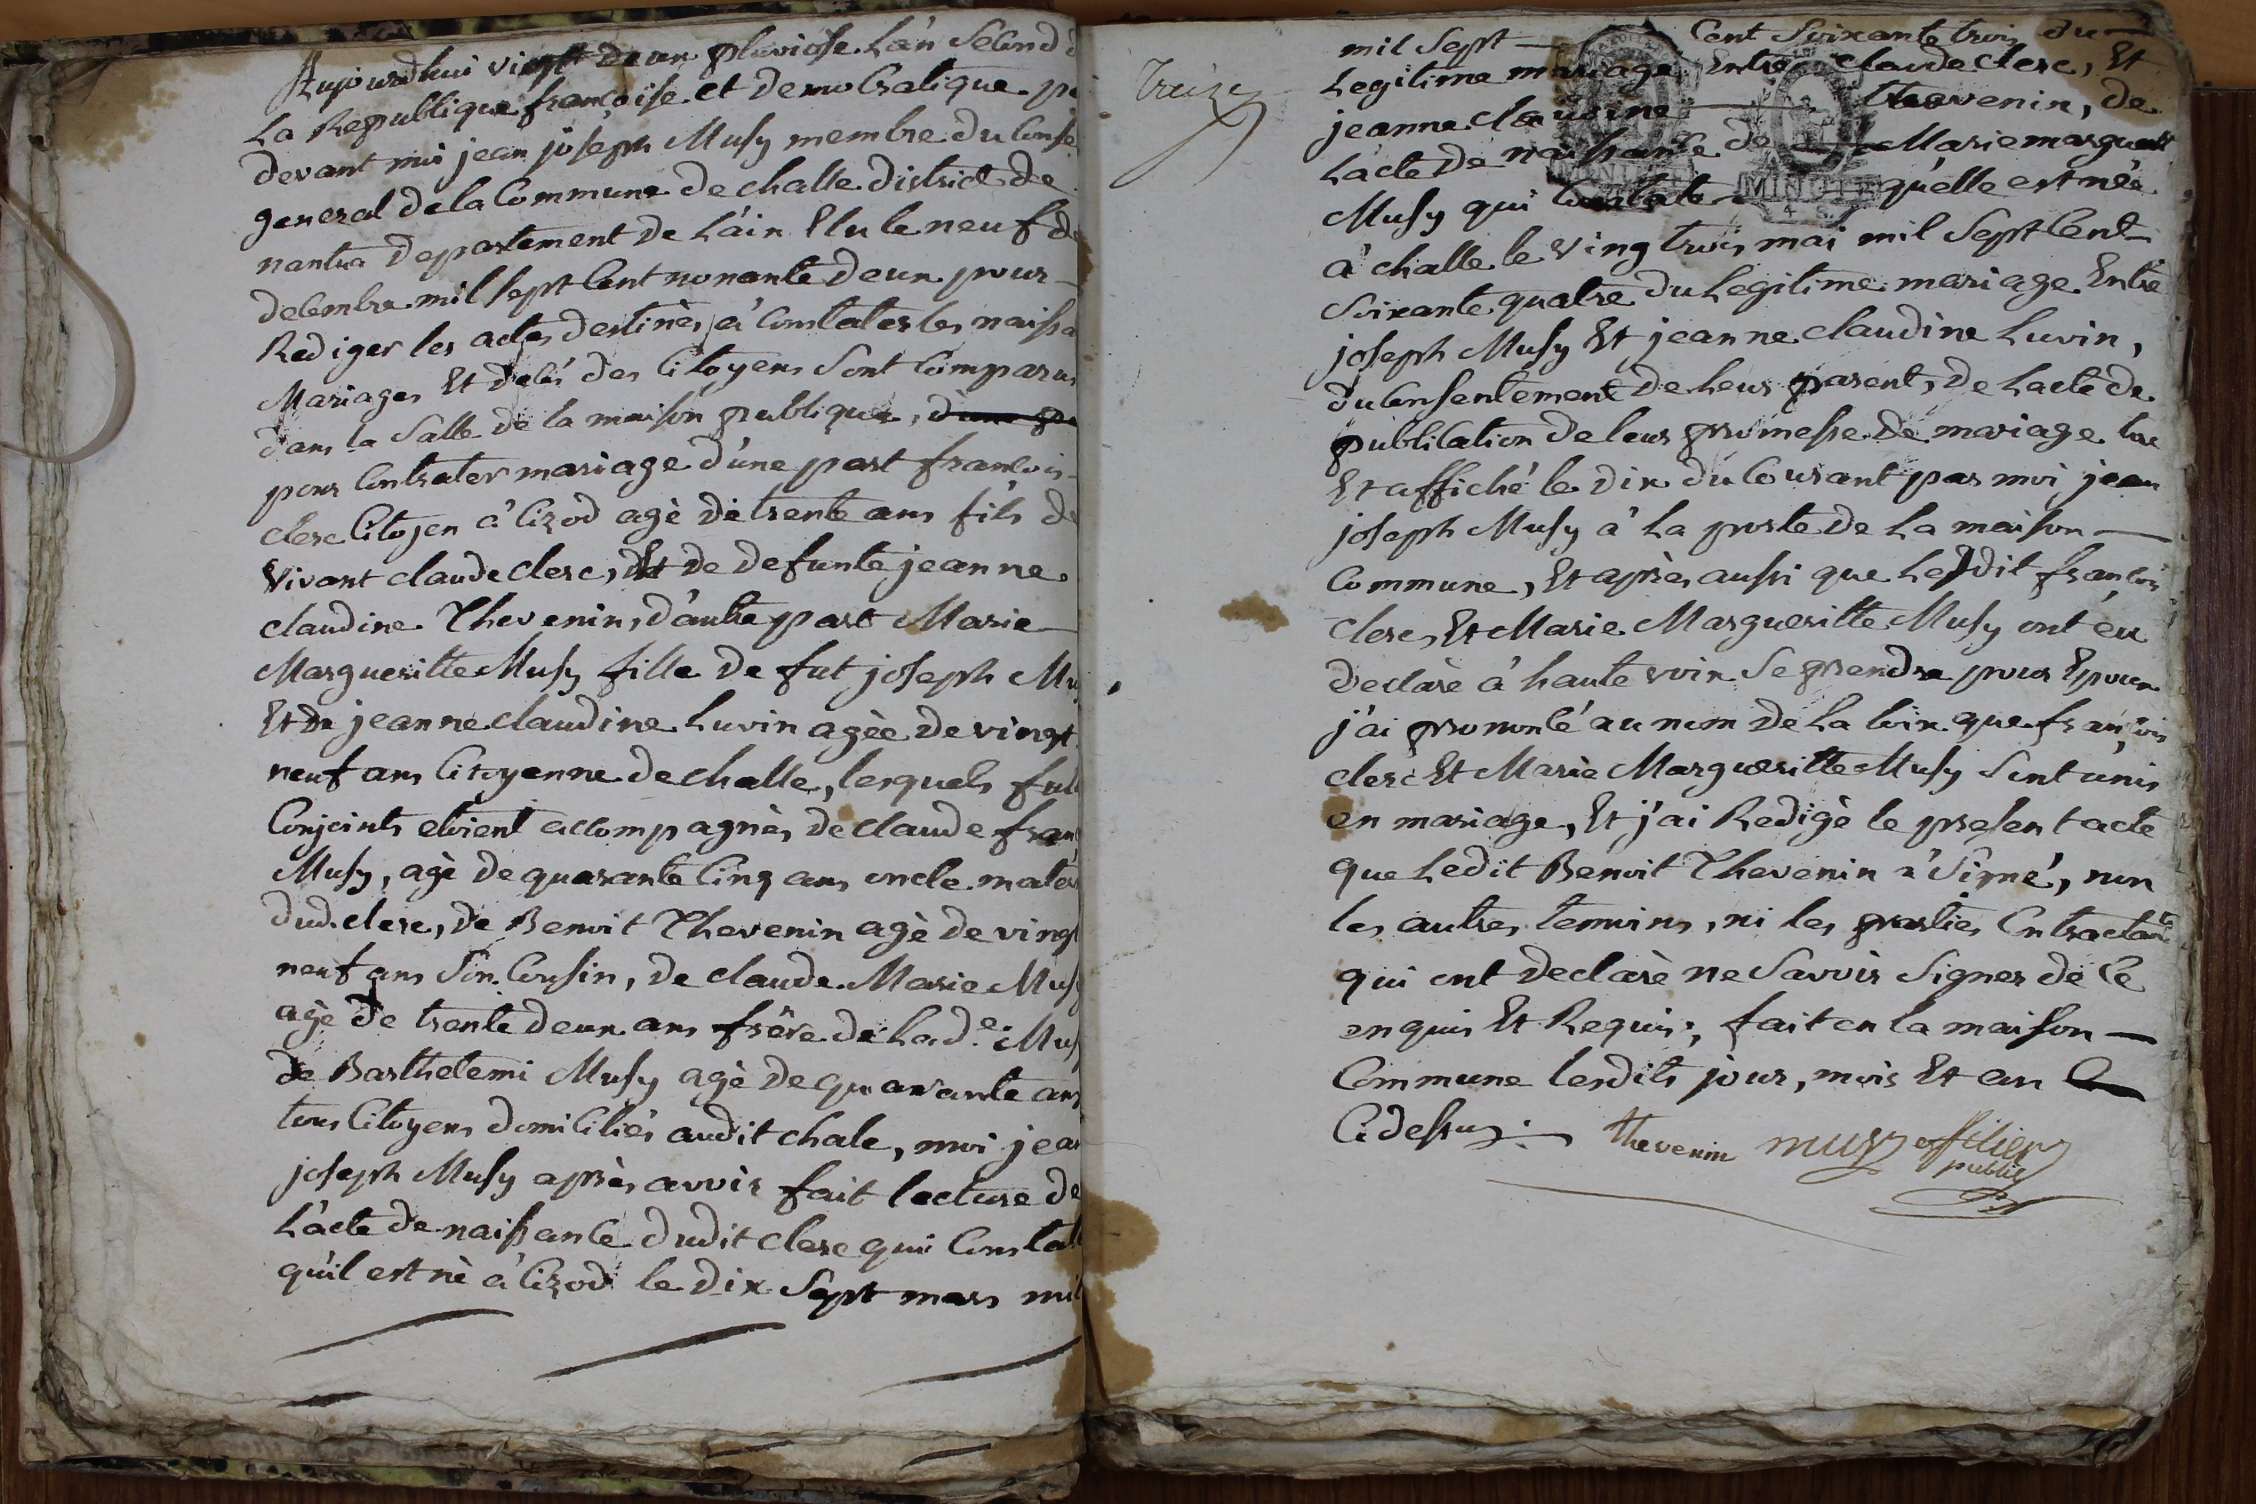 Aujourdhui vingt deux pluviose L'an Second d
La Republique françoise et democratique p
devant moi jean joseph Musy membre du Conse
general de la Commune de challe district de
nantua departement de L'ain Elu le neuf de
decembre mil sept Cent nonante deux pour
Rediger les actes destinès, à Constater les naissa
Mariages Et decés des Citoyens Sont Comparus
dans la Salle de la maison publique,
pour Contracter mariage d'une part francois
clerc Citoyen à Cizod agè de trente ans fils de
Vivant claude clerc, Et de defunte jeanne
claudine Thevenin, d'autre part Marie
Margueritte Musy fille de fut joseph Mu
Et de jeanne claudine Luvin agèe de vingt
neuf ans Citoyenne de challe, lesquels fut
Conjoints etoient accompagnès, de claude fran
Musy, agè de quarante Cinq ans oncle mater
dud. clerc, de Benoit Thevenin agè de vingt
neuf ans Son Cousin, de claude Marie Musy
agè de trente deux ans frère de Lad.e Mus
de Barthelemi Musy agè de quarante ans
tous Citoyens domiCiliés audit chale, moi jean
joseph Musy après avoir fait lecture de
L'acte de naissance dudit clerc qui Constat
qu'il est nè à Cizod le dix Sept mars mil
treize
mil Sept Cent Soixante trois du
Legitime mariage Entre claude clerc, Et
jeanne claudine thevenin, de
L'acte de naissance de Marie margueritt
Musy qui Constate qu'elle est née
MINUTE
4 S.
à challe le Ving trois mai mil Sept Cent
Soixante quatre du Legitime mariage Entre
joseph Musy Et jeanne claudine Luvin,
du Consentement de Leur parent, de Lacte de
publication de leur promesse de mariage lue
Et affiché le dix du Courant par moi jean
joseph Musy à La porte de La maison
Commune, Et après aussi que Ledit françois
clerc, Et Marie Margueritte Musy ont éu
declaré à haute voix Se prendre pour Epoux
j'ai prononcé au nom de La loix que françois
clerc Et Marie Margueritte Musy Sont unis
en mariage, Et j'ai Redigè le present acte
que Ledit Benoit Thevenin à Signé, non
les autres temoins, ni les parties Contractante
qui ont declarè ne Savoir Signer de Ce
enquis Et Requis, fait en la maison
Commune lesdits jour, mois Et an
Cidessus.
thevenin musy officier
public